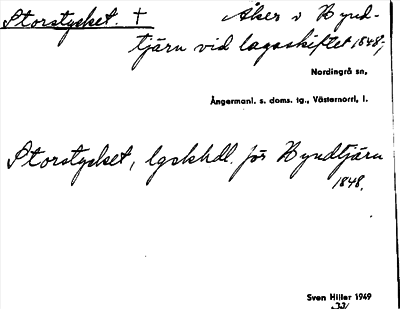 Storstycket. † Åker i Hynd-
tjärn vid lagaskiftet 1848,
Nordingrå sn,
Ångermanl. s. doms. tg., Västernorrl. l.
Storstycket, lgskhdl. för Hyndtjärn
1848.
Sven Hiller 1949